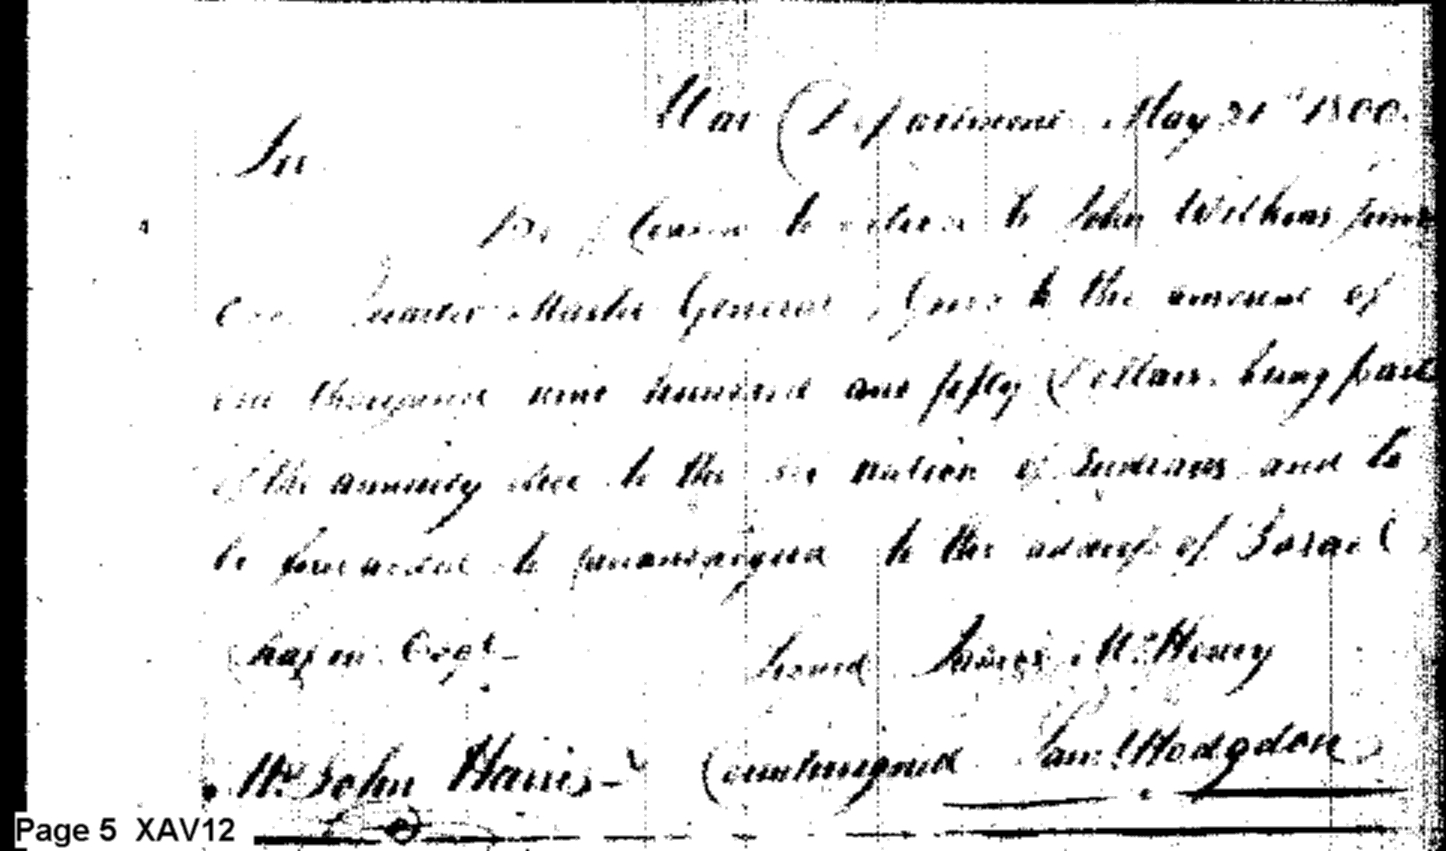 War Department May 31st 1800.
Sir
Be pleased to deliver to John Wilkins Junr
Esqr Quarter Master General, Goods to the amount of
one thousand nine hundred and fifty Dollars, being part
of the annuity due to the six nation of Indians and to
be forwarded to Canandaigua to the address of Israel
Chapin Esqr
Signed James McHenry
Mr John Harris
Countersigned Saml Hodgdon
Page 5 XAV12